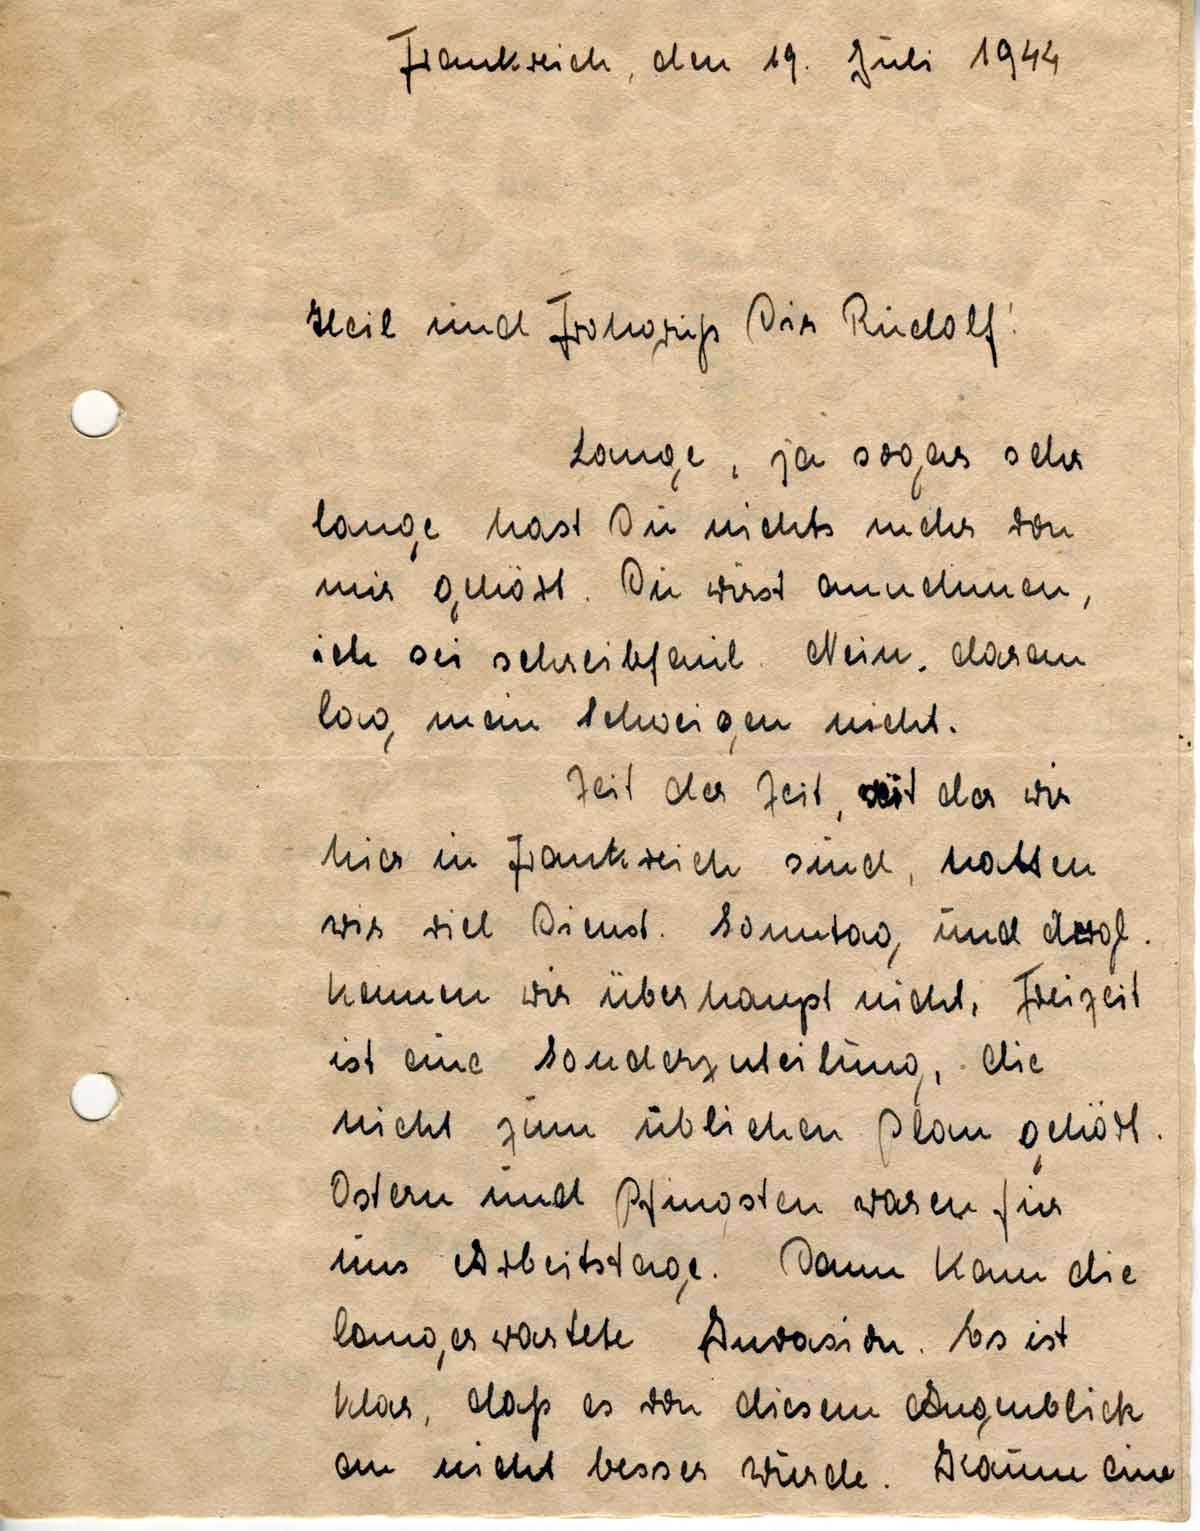 Frankreich, den 19. Juli 1944
Heil und Frohgruß Dir Rudolf!
Lange, ja sogar sehr
lange hast Du nichts mehr von
mir gehört. Du wirst annehmen,
ich sei schreibfaul. Nein, daran
lag mein Schweigen nicht.
Zeit der Zeit, seit der wir
hier in Frankreich sind, hatten
wir viel Dienst. Sonntag und
kennen wir überhaupt nicht. Freizeit
ist eine Sonderzuteilung, die
nicht zum üblichen Plan gehört.
Ostern und Pfingsten waren für
uns Arbeitstage. Dann kam die
langerwartete Invasion. Es ist
klar, daß es von diesem Augenblick
an nicht besser wurde. Kaum eine